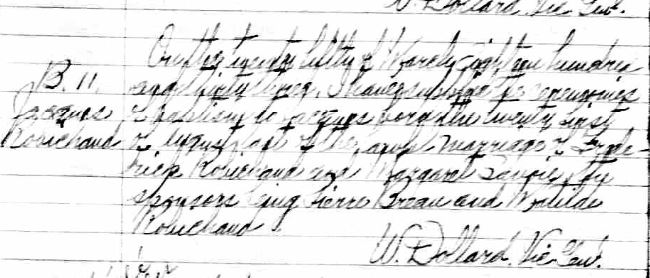 W. Dollard, Vic Gen.
B. 11,
Jacques
Robichaud
On the twenty fifth of March eighteen hundred
and thirty three, I have supplied the ceremonies
of baptism to Jacques born the twenty first
of August last of the lawful marriage of Frede-
rick Robichaud and Margaret Savoie, the
sponsors being Pierre Breau and Matilde
Robichaud
W. Dollard, Vic Gen.